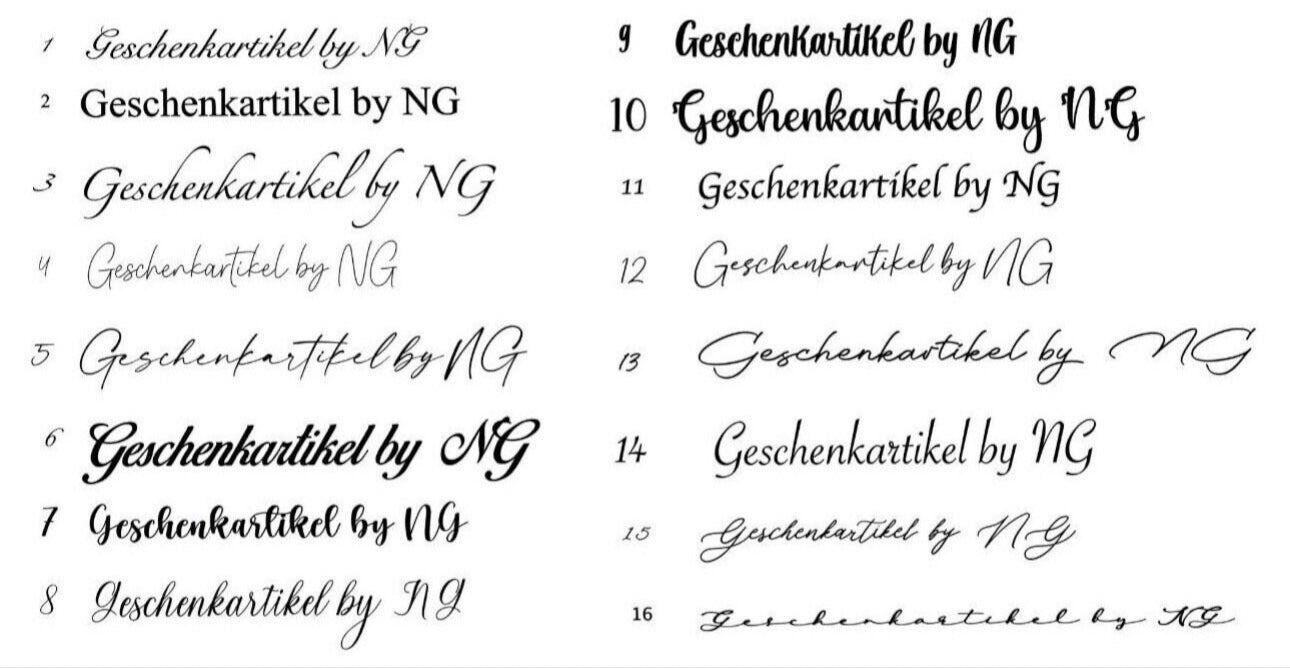 1 Geschenkartikel by NG
2 Geschenkartikel by NG
3 Geschenkartikel by NG
4 Geschenkartikel by NG
5 Geschenkartikel by NG
6 Geschenkartikel by NG
7 Geschenkartikel by NG
8 Geschenkartikel by NG
9 Geschenkartikel by NG
10 Geschenkartikel by NG
11 Geschenkartikel by NG
12 Geschenkartikel by NG
13 Geschenkartikel by NG
14 Geschenkartikel by NG
15 Geschenkartikel by NG
16 Geschenkartikel by NG